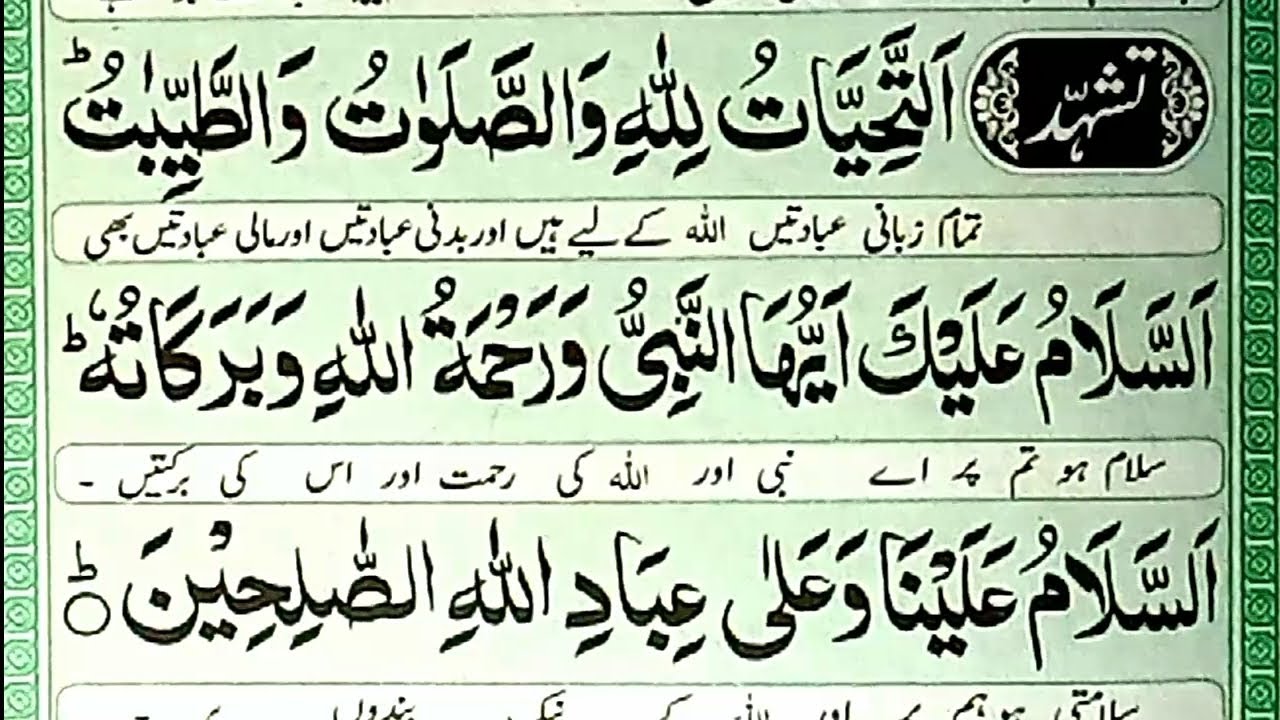 تشہّد
اَلتَّحِيَّاتُ لِلّٰهِ وَالصَّلَوٰتُ وَالطَّيِّبٰتُ ؕ
تمام زبانی عبادتیں اللہ کے لیے ہیں اور بدنی عبادتیں اور مالی عبادتیں بھی
اَلسَّلَامُ عَلَيْكَ اَيُّهَا النَّبِىُّ وَرَحْمَةُ اللّٰهِ وَبَرَكَاتُهٗ ؕ
سلام ہو تم پر اے نبی اور اللہ کی رحمت اور اس کی برکتیں ۔
اَلسَّلَامُ عَلَيْنَا وَعَلٰى عِبَادِ اللّٰهِ الصّٰلِحِيْنَ ؕ
سلامتی ہو ہم پر اور اللہ کے نیک بندوں پر ۔